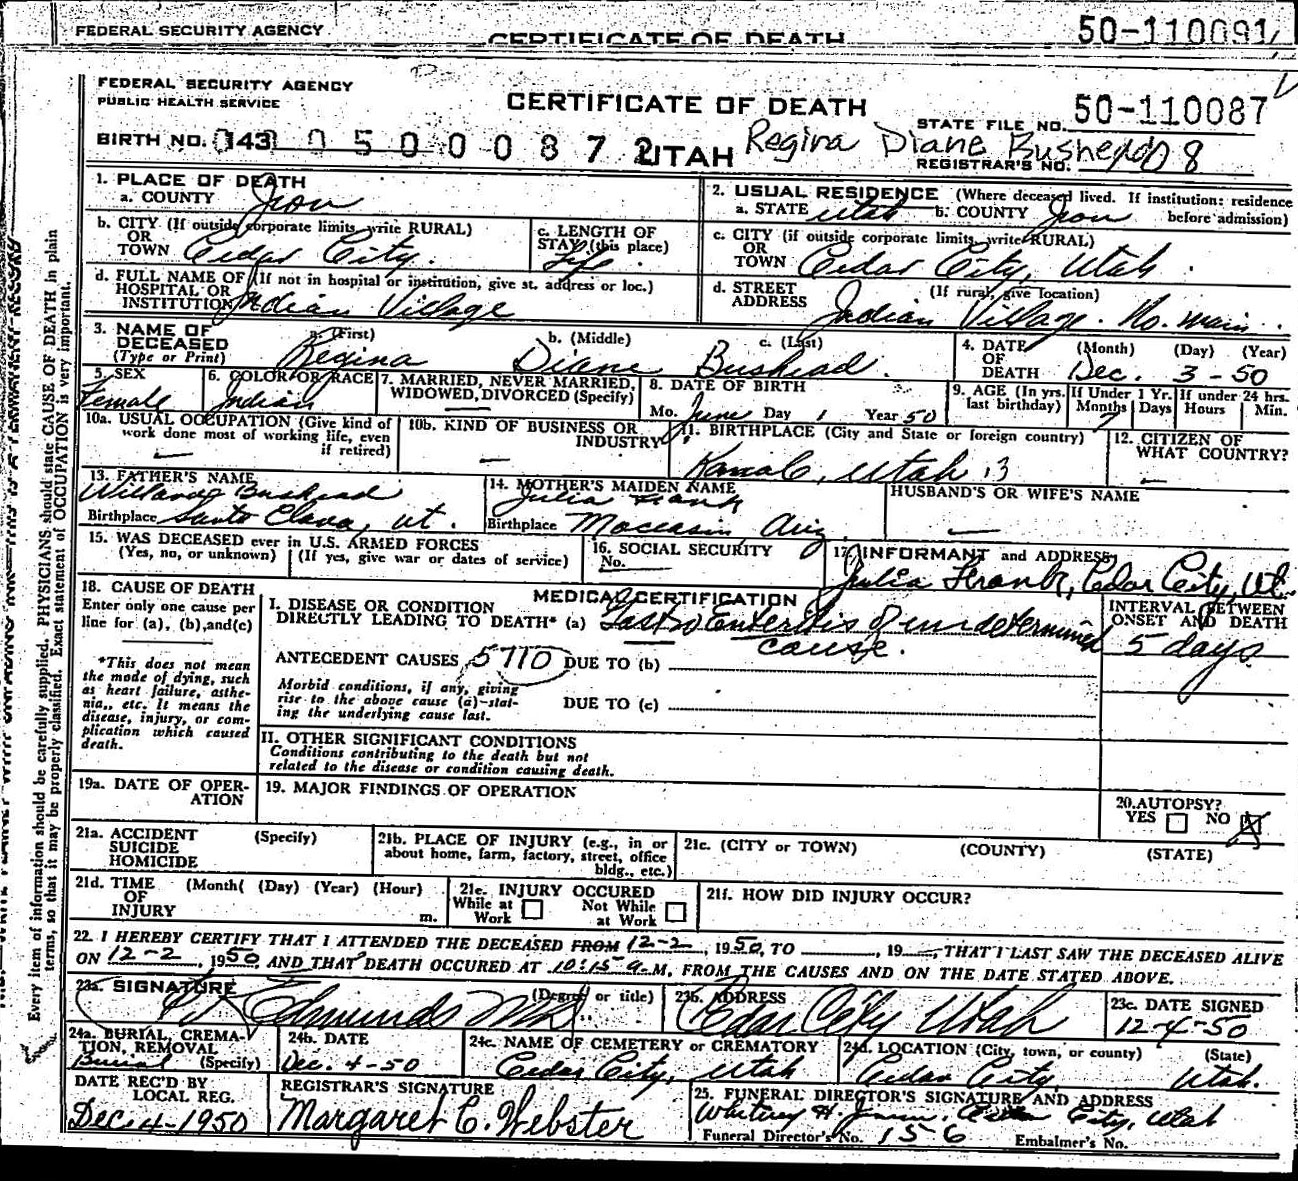 FEDERAL SECURITY AGENCY CERTIFICATE OF DEATH 50-110091
FEDERAL SECURITY AGENCY
PUBLIC HEALTH SERVICE
CERTIFICATE OF DEATH
STATE FILE NO. 50-110087
BIRTH NO. 143 0 5 0 0 0 8 7 2 UTAH Regina Diane Bushead REGISTRAR'S NO. 108
1. PLACE OF DEATH
a. COUNTY Iron
2. USUAL RESIDENCE (Where deceased lived. If institution: residence before admission)
a. STATE Utah b. COUNTY Iron
b. CITY (If outside corporate limits, write RURAL) OR TOWN Cedar City.
c. LENGTH OF STAY (this place) Life.
c. CITY (if outside corporate limits, write RURAL) OR TOWN Cedar City, Utah.
d. FULL NAME OF HOSPITAL OR INSTITUTION (If not in hospital or institution, give st. address or loc.) Indian Village
d. STREET ADDRESS (If rural, give location) Indian Village. No. main.
3. NAME OF DECEASED (Type or Print) a. (First) Regina b. (Middle) Diane c. (Last) Bushead.
4. DATE OF DEATH (Month) (Day) (Year) Dec. 3-50
5. SEX Female
6. COLOR OR RACE Indian
7. MARRIED, NEVER MARRIED, WIDOWED, DIVORCED (Specify) —
8. DATE OF BIRTH Mo. June Day 1 Year 50
9. AGE (In yrs. last birthday) If Under 1 Yr. Months Days If under 24 hrs. Hours Min.
10a. USUAL OCCUPATION (Give kind of work done most of working life, even if retired) —
10b. KIND OF BUSINESS OR INDUSTRY —
11. BIRTHPLACE (City and State or foreign country) Kanab, Utah
12. CITIZEN OF WHAT COUNTRY? —
13. FATHER'S NAME Willard Bushead
Birthplace Santa Clara, Ut.
14. MOTHER'S MAIDEN NAME Julia Frank
Birthplace Moccasin, Ariz
HUSBAND'S OR WIFE'S NAME —
15. WAS DECEASED ever in U.S. ARMED FORCES (Yes, no, or unknown) (If yes, give war or dates of service)
16. SOCIAL SECURITY No.
17. INFORMANT and ADDRESS Julia Frank, Cedar City, Ut.
18. CAUSE OF DEATH
Enter only one cause per line for (a), (b), and (c)
*This does not mean the mode of dying, such as heart failure, asthenia, etc. It means the disease, injury, or complication which caused death.
MEDICAL CERTIFICATION
I. DISEASE OR CONDITION DIRECTLY LEADING TO DEATH* (a) Gastro Enteritis of undetermined cause.
INTERVAL BETWEEN ONSET AND DEATH 5 days
ANTECEDENT CAUSES 5710 DUE TO (b)
Morbid conditions, if any, giving rise to the above cause (a)-stating the underlying cause last.
DUE TO (c)
II. OTHER SIGNIFICANT CONDITIONS
Conditions contributing to the death but not related to the disease or condition causing death.
19a. DATE OF OPERATION
19. MAJOR FINDINGS OF OPERATION
20. AUTOPSY? YES NO X
21a. ACCIDENT SUICIDE HOMICIDE (Specify)
21b. PLACE OF INJURY (e.g., in or about home, farm, factory, street, office bldg., etc.)
21c. (CITY or TOWN) (COUNTY) (STATE)
21d. TIME OF INJURY (Month( (Day) (Year) (Hour) m.
21e. INJURY OCCURED While at Work Not While at Work
21f. HOW DID INJURY OCCUR?
22. I HEREBY CERTIFY THAT I ATTENDED THE DECEASED FROM 12-2, 1950, TO , 19 , THAT I LAST SAW THE DECEASED ALIVE
ON 12-2, 1950, AND THAT DEATH OCCURED AT 10:15 a. M, FROM THE CAUSES AND ON THE DATE STATED ABOVE.
23a. SIGNATURE (Degree or title) Edmunds MD
23b. ADDRESS Cedar City Utah
23c. DATE SIGNED 12-4-50
24a. BURIAL, CREMATION, REMOVAL (Specify) Burial
24b. DATE Dec. 4-50
24c. NAME OF CEMETERY or CREMATORY Cedar City, Utah
24d. LOCATION (City, town, or county) (State) Cedar City, Utah.
DATE REC'D BY LOCAL REG. Dec. 4-1950
REGISTRAR'S SIGNATURE Margaret C. Webster
25. FUNERAL DIRECTOR'S SIGNATURE AND ADDRESS Whitney H. City, Utah
Funeral Director's No. 156 Embalmer's No.
Every item of information should be carefully supplied. PHYSICIANS should state CAUSE OF DEATH in plain
terms, so that it may be properly classified. Exact statement of OCCUPATION is very important.